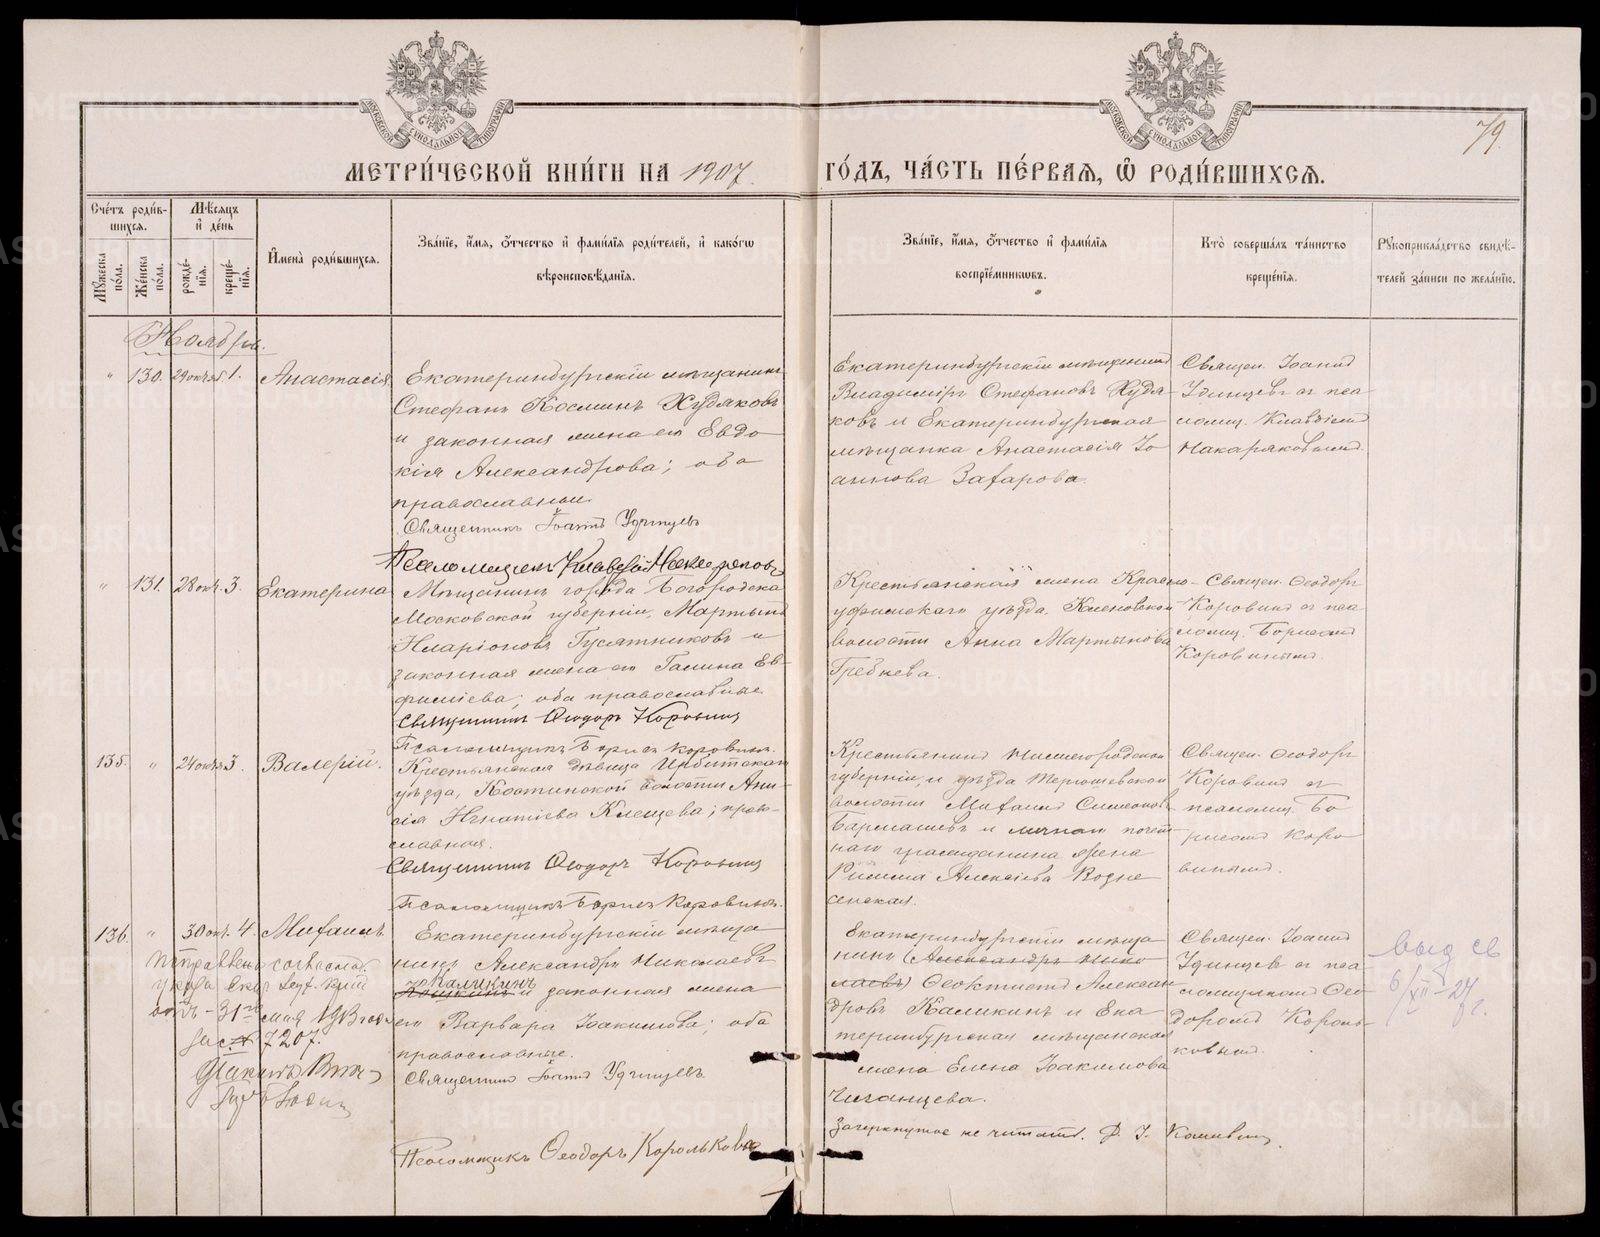 МЕТРИ́ЧЕСКОЙ КНИ́ГИ НА 1907
ГО́ДЪ, ЧА́СТЬ ПЕ́РВАЯ, Ѿ РОДИ́ВШИХСЯ.
79.
Сче́тъ роди́в-
шихся.
Мꙋ́жеска по́ла.
Же́нска по́ла.
Мѣ́сяцъ и҆ де́нь
рожде́нїя.
креще́нїя.
И҆мена̀ роди́вшихся.
Зва́нїе, и҆́мя, ѻ҆́тчество и҆ фами́лїя роди́телей, и҆ како́гѡ
вѣроисповѣ́данїя.
Зва́нїе, и҆́мя, ѻ҆́тчество и҆ фами́лїя
воспрїе́мникѡвъ.
Кто̀ соверша́лъ та́инство
креще́нїя.
Рꙋкоприкла́дство свидѣ́-
телей за́писи по жела́нїю.
Ноябрь.
" 130. 29 октяб. 1. Анастасія
Екатеринбургскій мѣщанинъ
Стефанъ Косминъ Худяковъ
и законная жена его Евдо
кія Александрова; оба
православные
Священникъ Іоаннъ Удинцевъ
Псаломщикъ Клавдій Накаряковъ
Екатеринбургскій мѣщанинъ
Владиміръ Стефановъ Худя-
ковъ и Екатеринбургская
мѣщанка Анастасія Іо
аннова Захарова.
Священ. Іоаннъ
Удинцевъ съ пса-
ломщ. Клавдіемъ
Накаряковымъ.
" 131. 28 окт. 3. Екатерина
Мѣщанинъ города Богородска
Московской губерніи, Мартынъ
Иларіоновъ Гусятниковъ и
законная жена его Галина Ев-
фиміева; оба православные
Священникъ Ѳеодоръ Коровинъ
Псаломщикъ Борисъ Коровинъ.
Крестьянская жена Красно-
уфимскаго уѣзда, Кленовской
волости Анна Мартынова
Гребнева.
Священ. Ѳеодоръ
Коровинъ съ пса
ломщ. Борисомъ
Коровинымъ
135. " 24 октя 3. Валерій.
Крестьянская дѣвица Ирбитскаго
уѣзда, Костинской волости Ани-
сія Игнатіева Клещева; право-
славная.
Священникъ Ѳеодоръ Коровинъ
Псаломщикъ Борисъ Коровинъ.
Крестьянинъ Нижегородской
губерніи, и уѣзда Терюшевской
волости Михаилъ Симеоновъ
Бармашевъ и личнаго почет
наго гражданина жена
Римма Алексіева Возне
сенская.
Священ. Ѳеодоръ
Коровинъ съ
псаломщ. Бо
рисомъ Коро
винымъ.
136. " 30 окт. 4. Михаилъ
Екатеринбургскій мѣща
нинъ Александръ Николаевъ
Калинкинъ
и законная жена
его Варвара Іоакимова; оба
православные.
Священникъ Іоаннъ Удинцевъ
Псаломщикъ Ѳеодоръ Корольковъ
Исправлено согласно
указа Екат.
отъ - 31го мая 1913 года
за № 7207.
Екатеринбургскій мѣща
нинъ (Александръ Нико
лаевъ) Ѳеоктистъ Алексан
дровъ Калинкинъ и Ека
теринбургская мѣщанская
жена Елена Іоакимова
Чиганцева.
Зачеркнутое не читать.
Священ. Іоаннъ
Удинцев съ пса
ломщикомъ Ѳео
доромъ Король-
ковымъ.
выд св
6/XII-24 г.